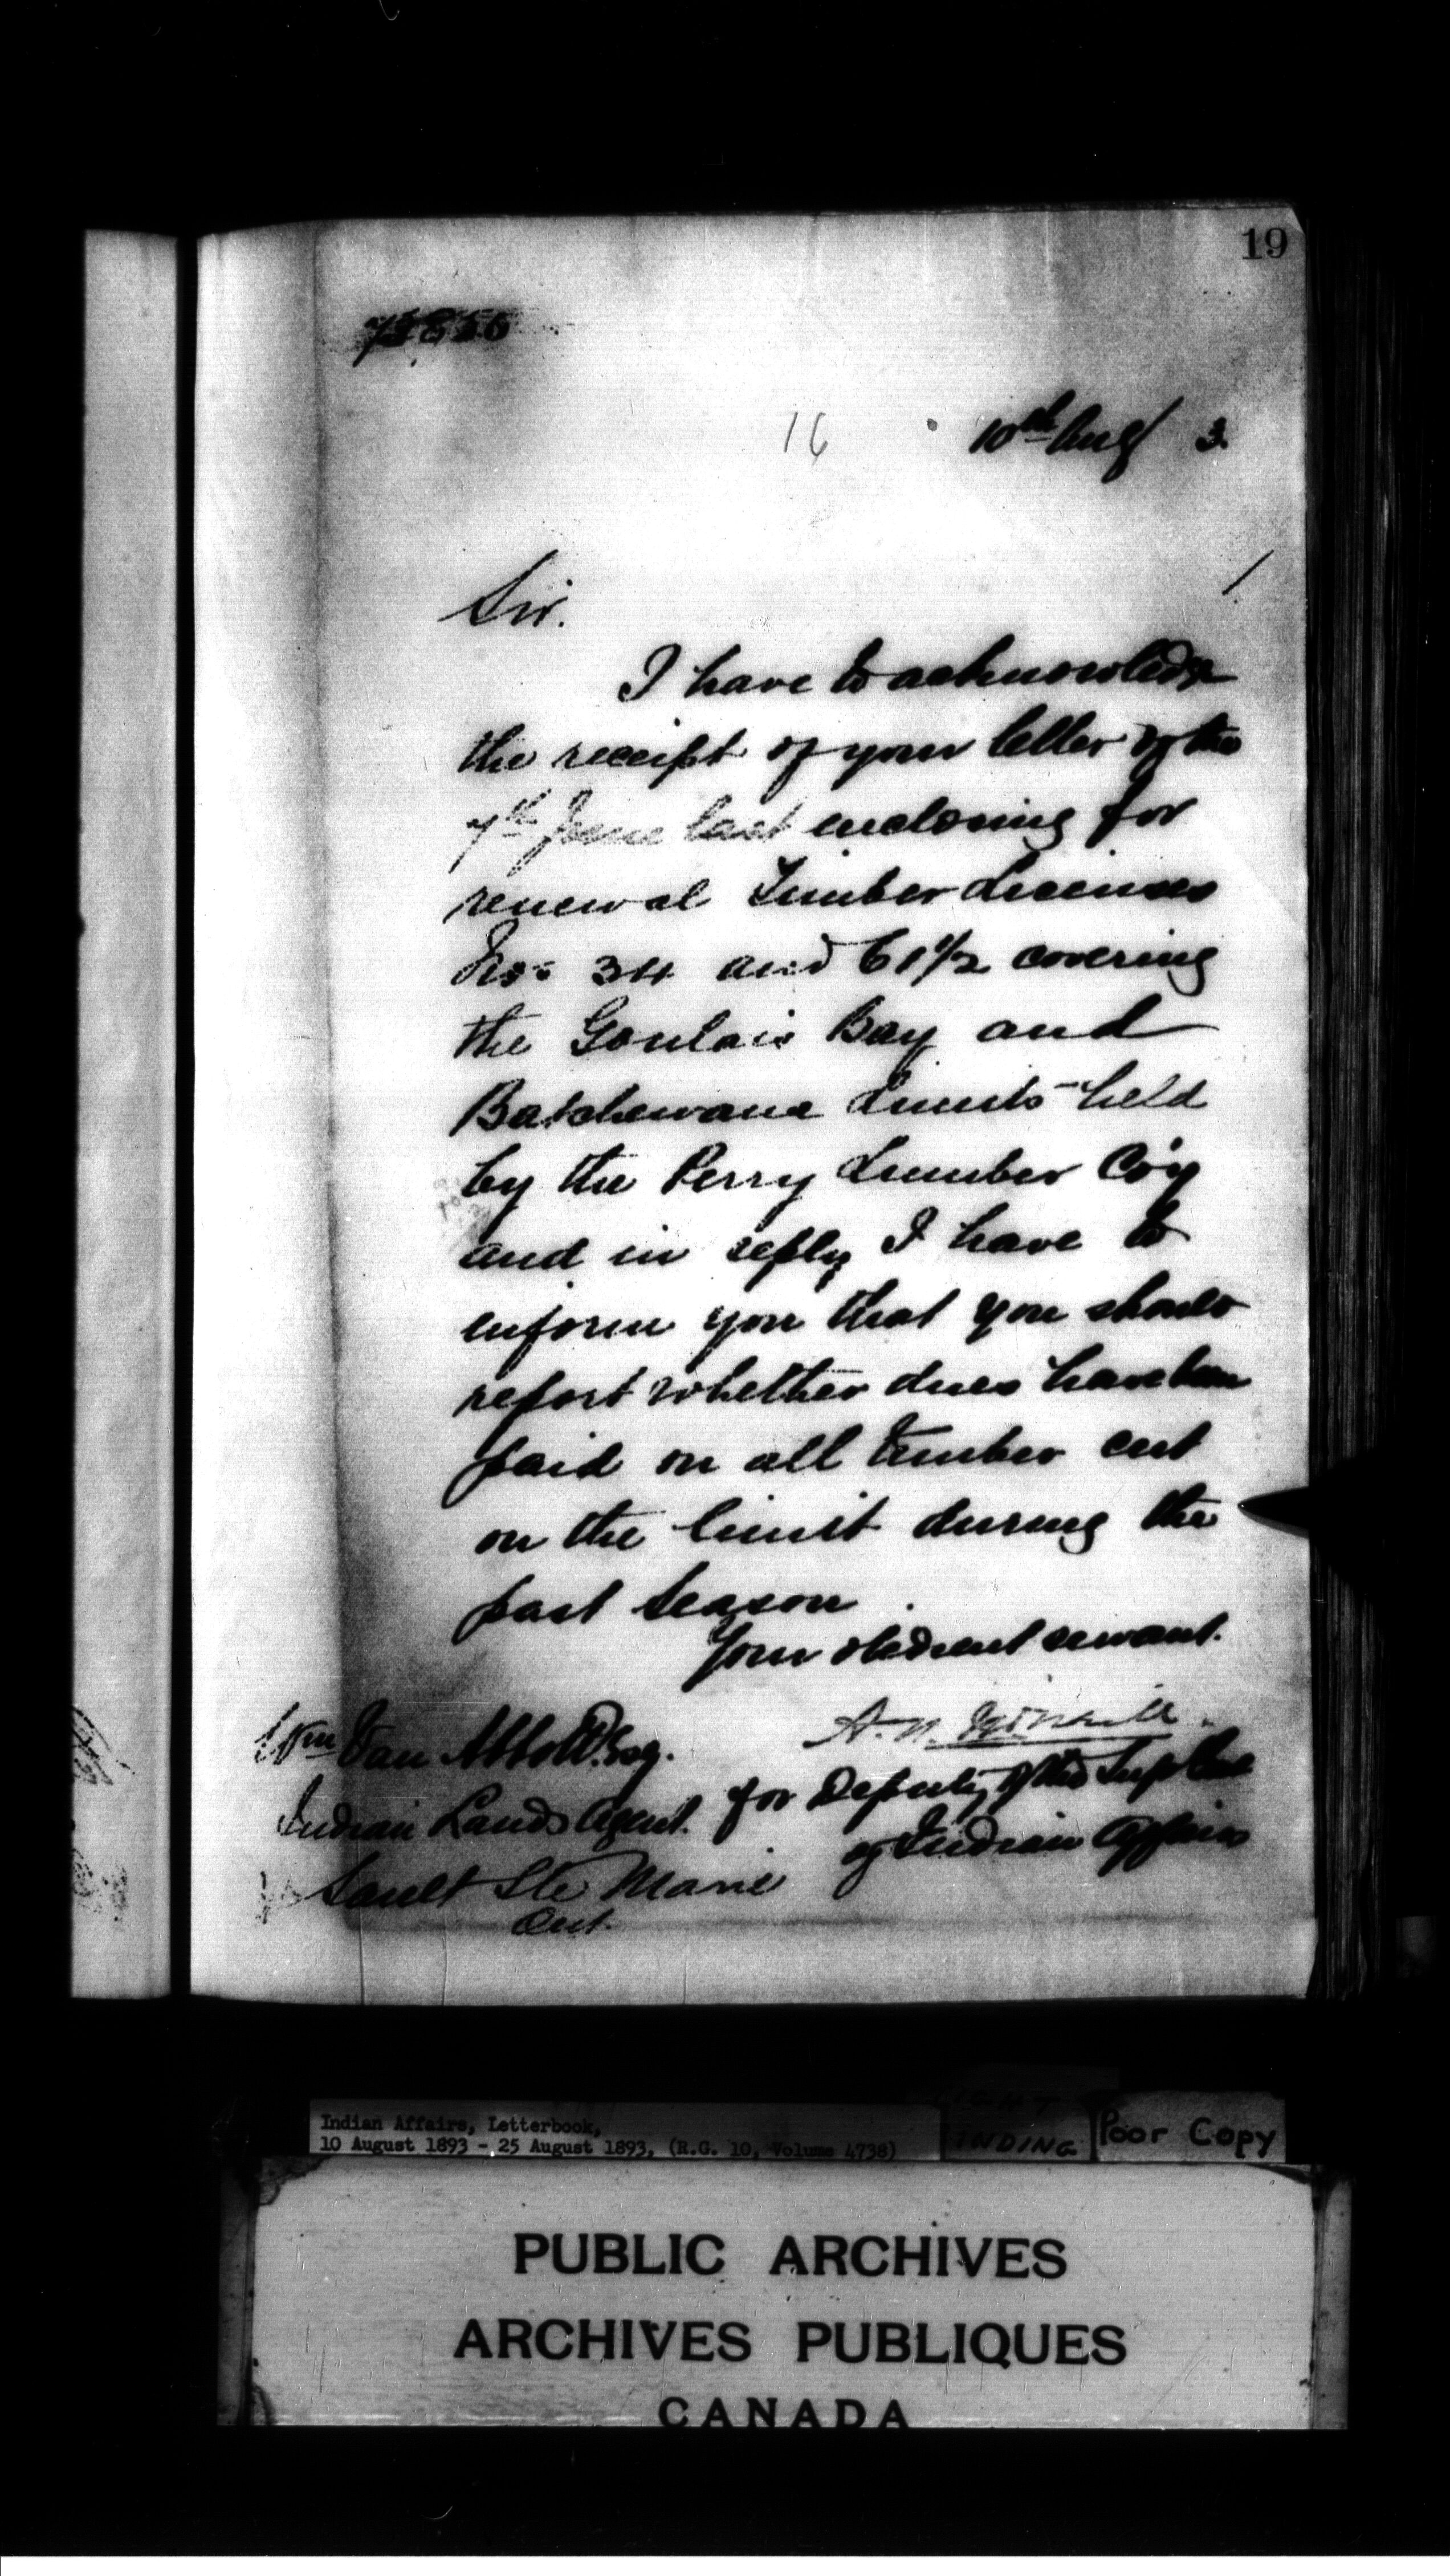 19
10th Aug 3.
16
Sir.
I have to acknowledge
the receipt of your letter of the
7th June last enclosing for
renewal Timber Licenses
Nos 34 and 61½ covering
the Goulais Bay and
Batchewana Limits held
by the Perry Lumber Co'y
and in reply I have to
inform you that you should
report whether dues have been
paid on all timber cut
on the limit during the
past season
Your obedient servant.
A. N.
for Deputy of the Supt Genl
of Indian Affairs
Wm Van Abbott Esq.
Indian Lands Agent.
Sault Ste Marie
Ont.
Indian Affairs, Letterbook,
10 August 1893 - 25 August 1893, (R.G. 10, Volume 4738)
INDING
Poor Copy
PUBLIC ARCHIVES
ARCHIVES PUBLIQUES
CANADA